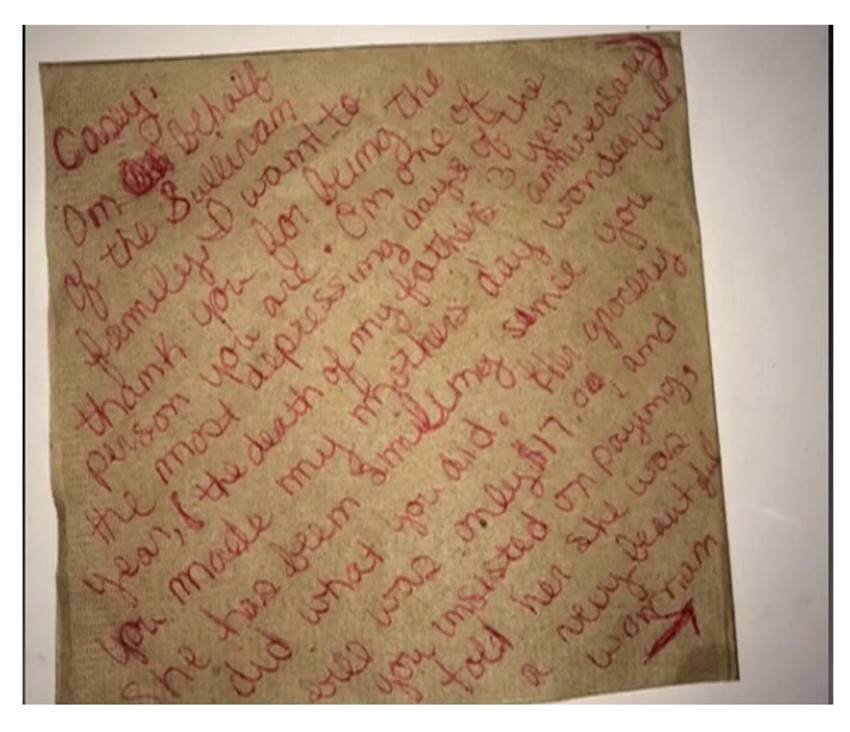 Casey,
On behalf
of the Sullivan
family, I want to
thank you for being the
person you are. On one of
the most depressing days of the
year, (the death of my fathers 3 year anniversary)
you made my mothers day wonderful
She has been smiling since you
did what you did. Her grocery
bill was only $17.00, and
you insisted on paying,
told her she was
a very beautiful
woman